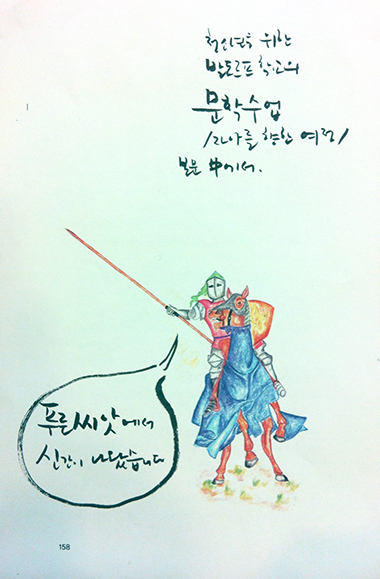 청소년을 위한
발도르프 학교의
문학수업
/자아를 향한 여정/
본문 中에서.
푸른씨앗에서
신간이 나왔습니다
158